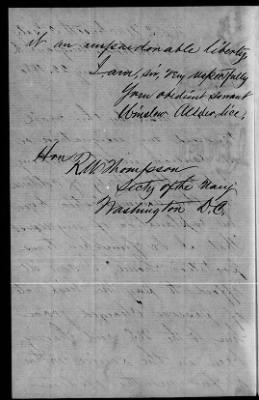 it an unpardonable liberty,
I am, sir, very respectfully
Your obedient servant
Winslow
Hon
R W Thompson
Secty of the Navy
Washington D.C.